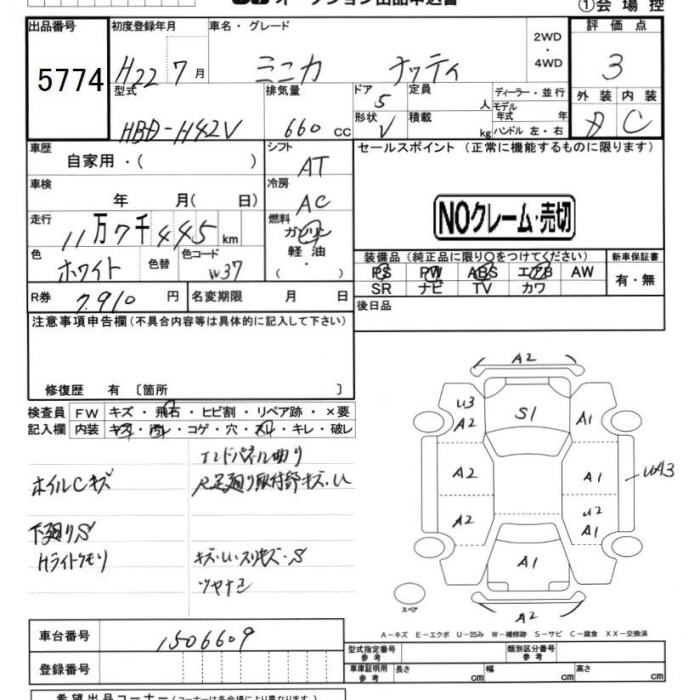 ①会場控
出品番号 初度登録年月 車名・グレード 2WD・4WD 評価点
5774 H22 7月 ミニカ ナッティ 3
型式 排気量 ドア 5 定員 人 ディーラー・並行 外装 内装
HBD-H42V 660cc 形状 V 積載 kg モデル年式 年 ハンドル 左・右 C
車歴 シフト セールスポイント (正常に機能するものに限ります)
自家用・( ) AT
車検 冷房
年 月( 日) AC
NOクレーム・売切
走行 燃料
11万7千445km ガソリン
色 色替 色コード 軽油・
ホワイト W37 ( )
装備品 (純正品に限り○をつけてください) 新車保証書
PS PW ABS エアB AW 有・無
SR ナビ TV カワ
R券 7,910円 名変期限 月 日 後日品
注意事項申告欄(不具合内容等は具体的に記入して下さい)
修復歴 有 〔箇所 〕
検査員 FW キズ・飛石・ヒビ割・リペア跡・×要
記入欄 内装 キズ・汚レ・コゲ・穴・スレ・キレ・破レ
エンドパネル曲り
ホイルCキズ
下廻りS
Hライトクモリ
キズ・U・スリキズ・S
ツヤナシ
A2
U3
A2
S1
A1
A2
A1
UA3
A2
U2
A1
A1
A2
スペア
A-キズ E-エクボ U-凹み W-補修跡 S-サビ C-腐食 XX-交換済
車台番号 1506609
登録番号
型式指定番号 参考 類別区分番号 参考
車庫証明用 参考 長さ cm 幅 cm 高さ cm
希望出品コーナー(コーナーは各会場により異なります)